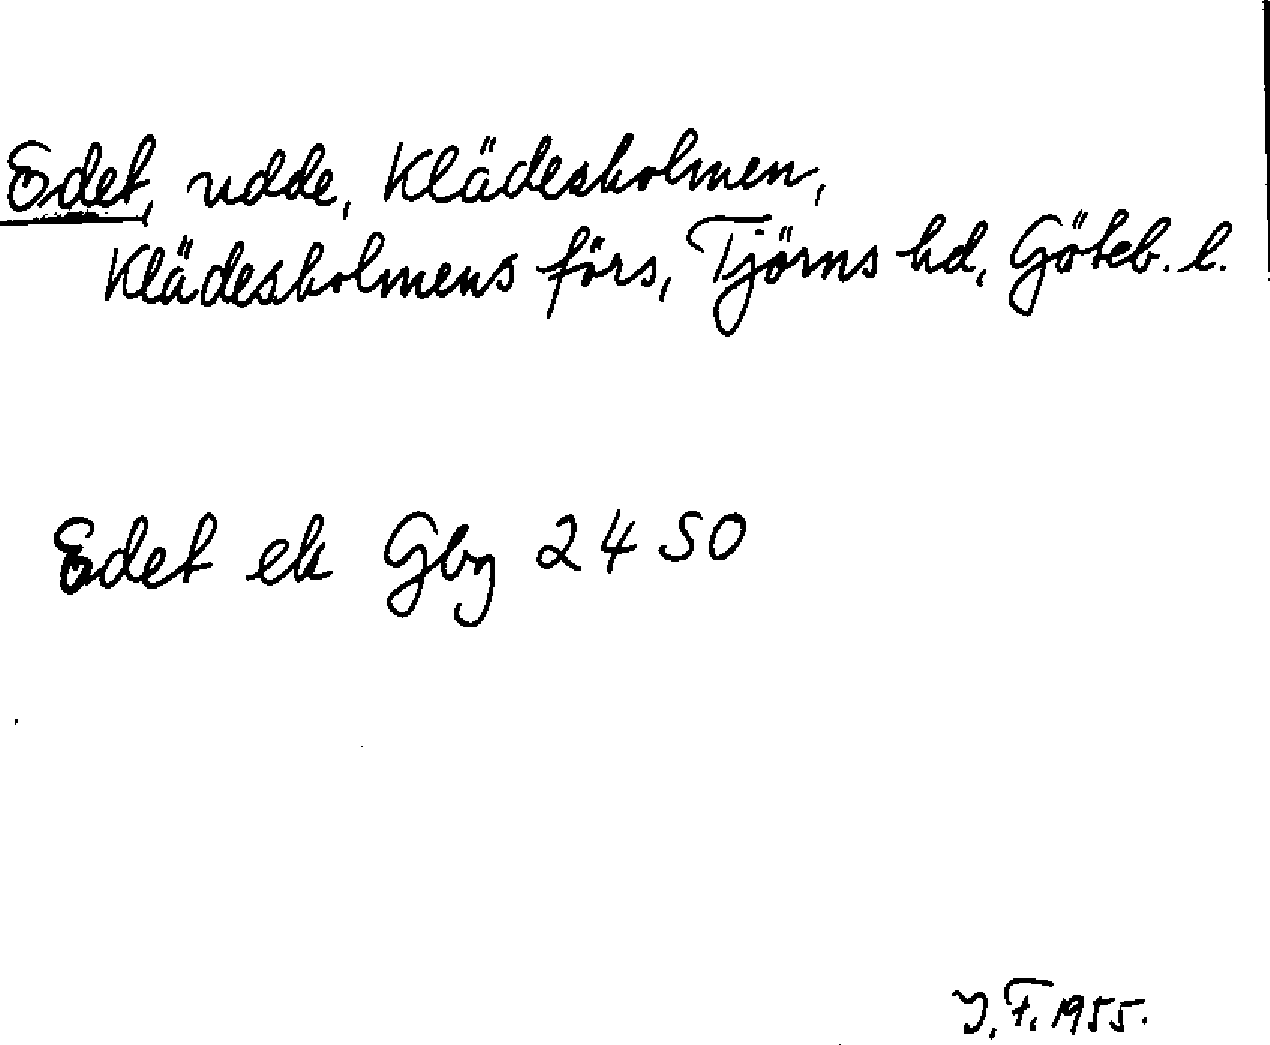 Edet, udde, Klädesholmen,
Klädesholmens förs, Tjörns hd, Göteb. l.
Edet ek Gbg 2450
J.F. 1955.